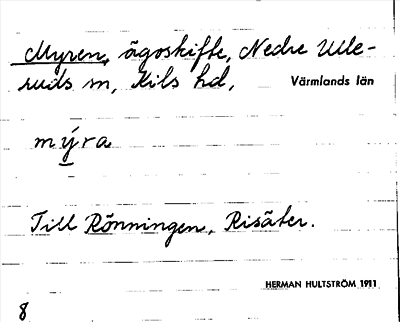 Myren, ägoskifte, Nedre Ulle-
ruds sn, Kils hd, Värmlands län
mýra
Till Rönningen, Risäter.
HERMAN HULTSTRÖM 1911
8